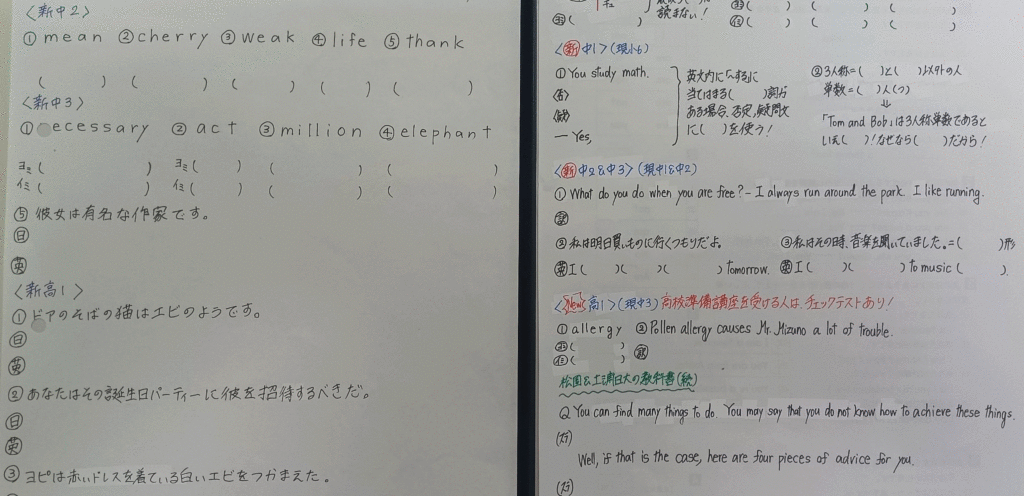 〈新中2〉
① mean ② cherry ③ weak ④ life ⑤ thank
( ) ( ) ( ) ( ) ( )
〈新中3〉
① ecessary ② act ③ million ④ elephant
ヨミ( ) ヨミ( ) ( ) ( )
イミ( ) イミ( ) ( ) ( )
⑤ 彼女は有名な作家です。
日
英
〈新高1〉
① ドアのそばの猫はエビのようです。
日
英
② あなたはその誕生日パーティーに彼を招待するべきだ。
日
英
③ ヨピは赤いドレスを着ている白いエビをつかまえた。
読まない!
〈新中1〉(現小6)
① You study math.
否
疑
— Yes,
英文内に「〜する」に
当てはまる( )詞が
ある場合、否定、疑問文
に( )を使う!
② 3人称=( )と( )以外の人
単数=( )人(つ)
↓
「Tom and Bob」は3人称単数であると
いえ( )!なぜなら( )だから!
〈新中2&中3〉(現中1&中2)
① What do you do when you are free? – I always run around the park. I like running.
訳
② 私は明日買いものに行くつもりだよ。 ③ 私はその時、音楽を聞いていました。=( )形
英 I ( )( )( ) tomorrow. 英 I ( )( ) to music ( ).
〈New高1〉(現中3) 高校準備講座を受ける人は、チェックテストあり!
① allergy ② Pollen allergy causes Mr. Mizuno a lot of trouble.
ヨミ( ) 訳
イミ( )
松国&土浦日大の教科書(続)
Q You can find many things to do. You may say that you do not know how to achieve these things.
Well, if that is the case, here are four pieces of advice for you.